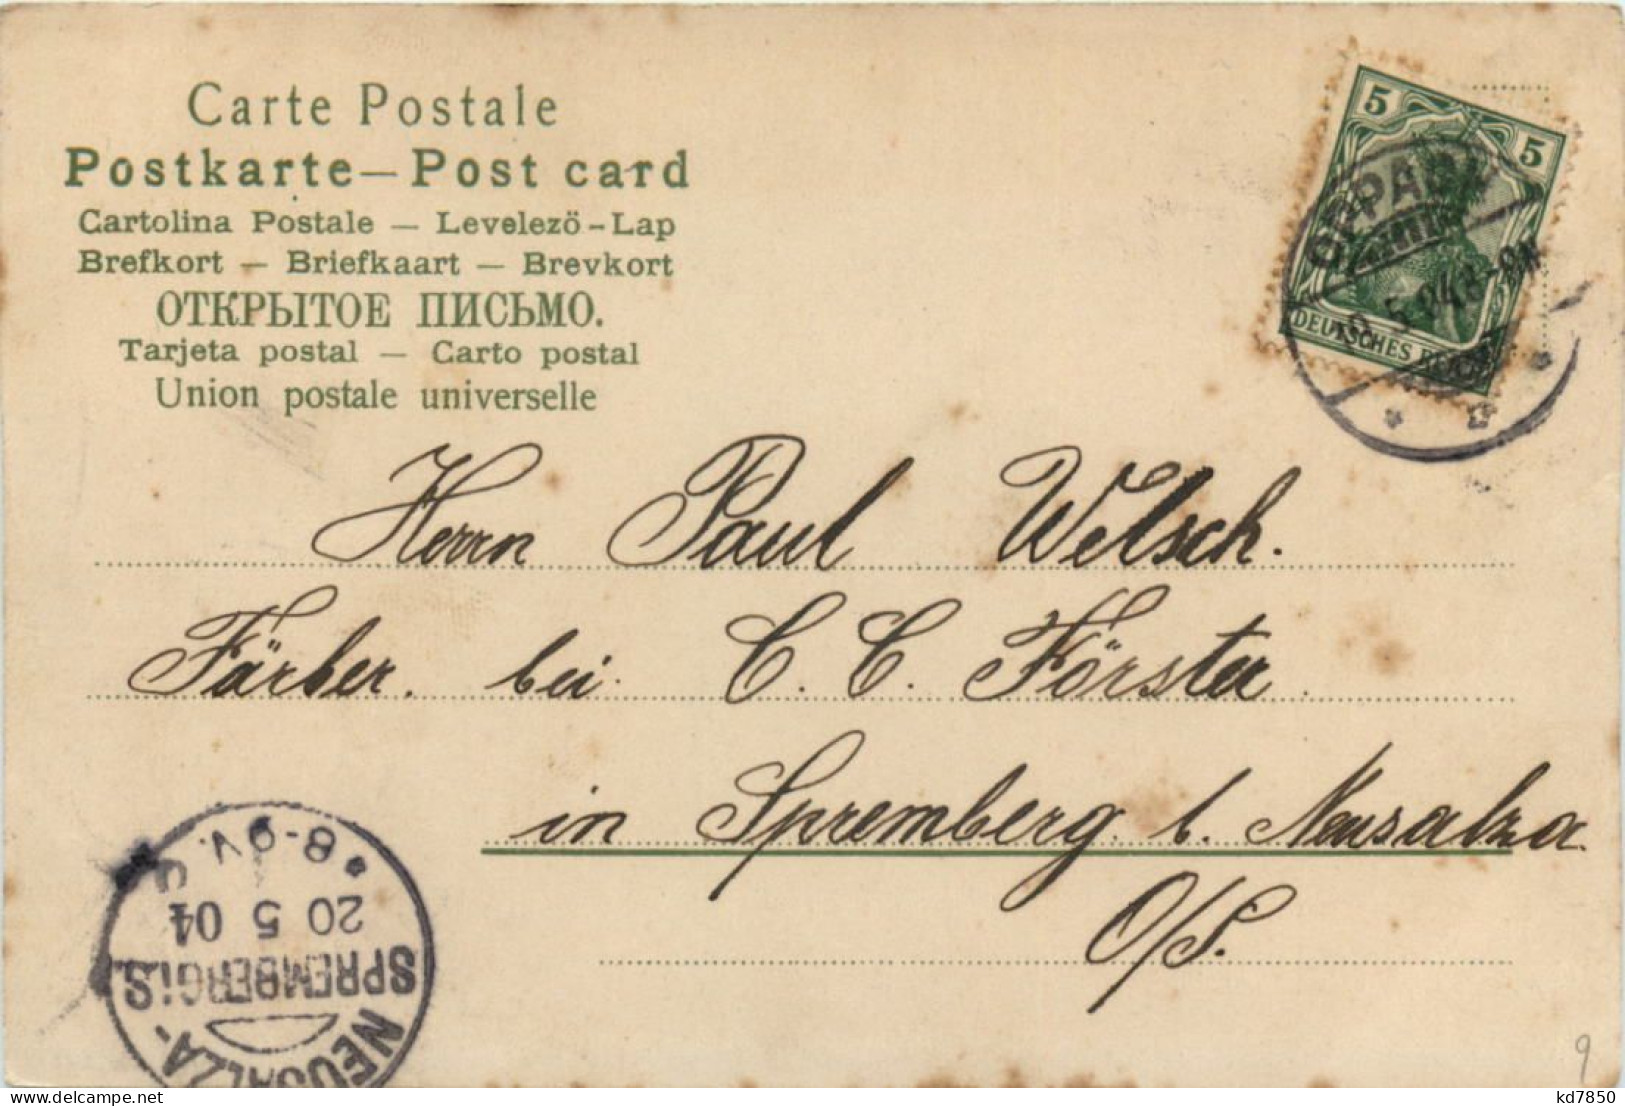 Carte Postale
Postkarte — Post card
Cartolina Postale — Levelező-Lap
Brefkort — Briefkaart — Brevkort
ОТКРЫТОЕ ПИСЬМО.
Tarjeta postal — Carto postal
Union postale universelle
5 5
OPPACH
5.04.8-9N.
DEUTSCHES REICH
Herrn Paul Welsch.
Färber. bei C. C. Förster.
in Spremberg b. Neusalza.
O/S.
NEUSALZA-
SPREMBERG i. S.
20 5 04
*8-9V. c
9
kd7850